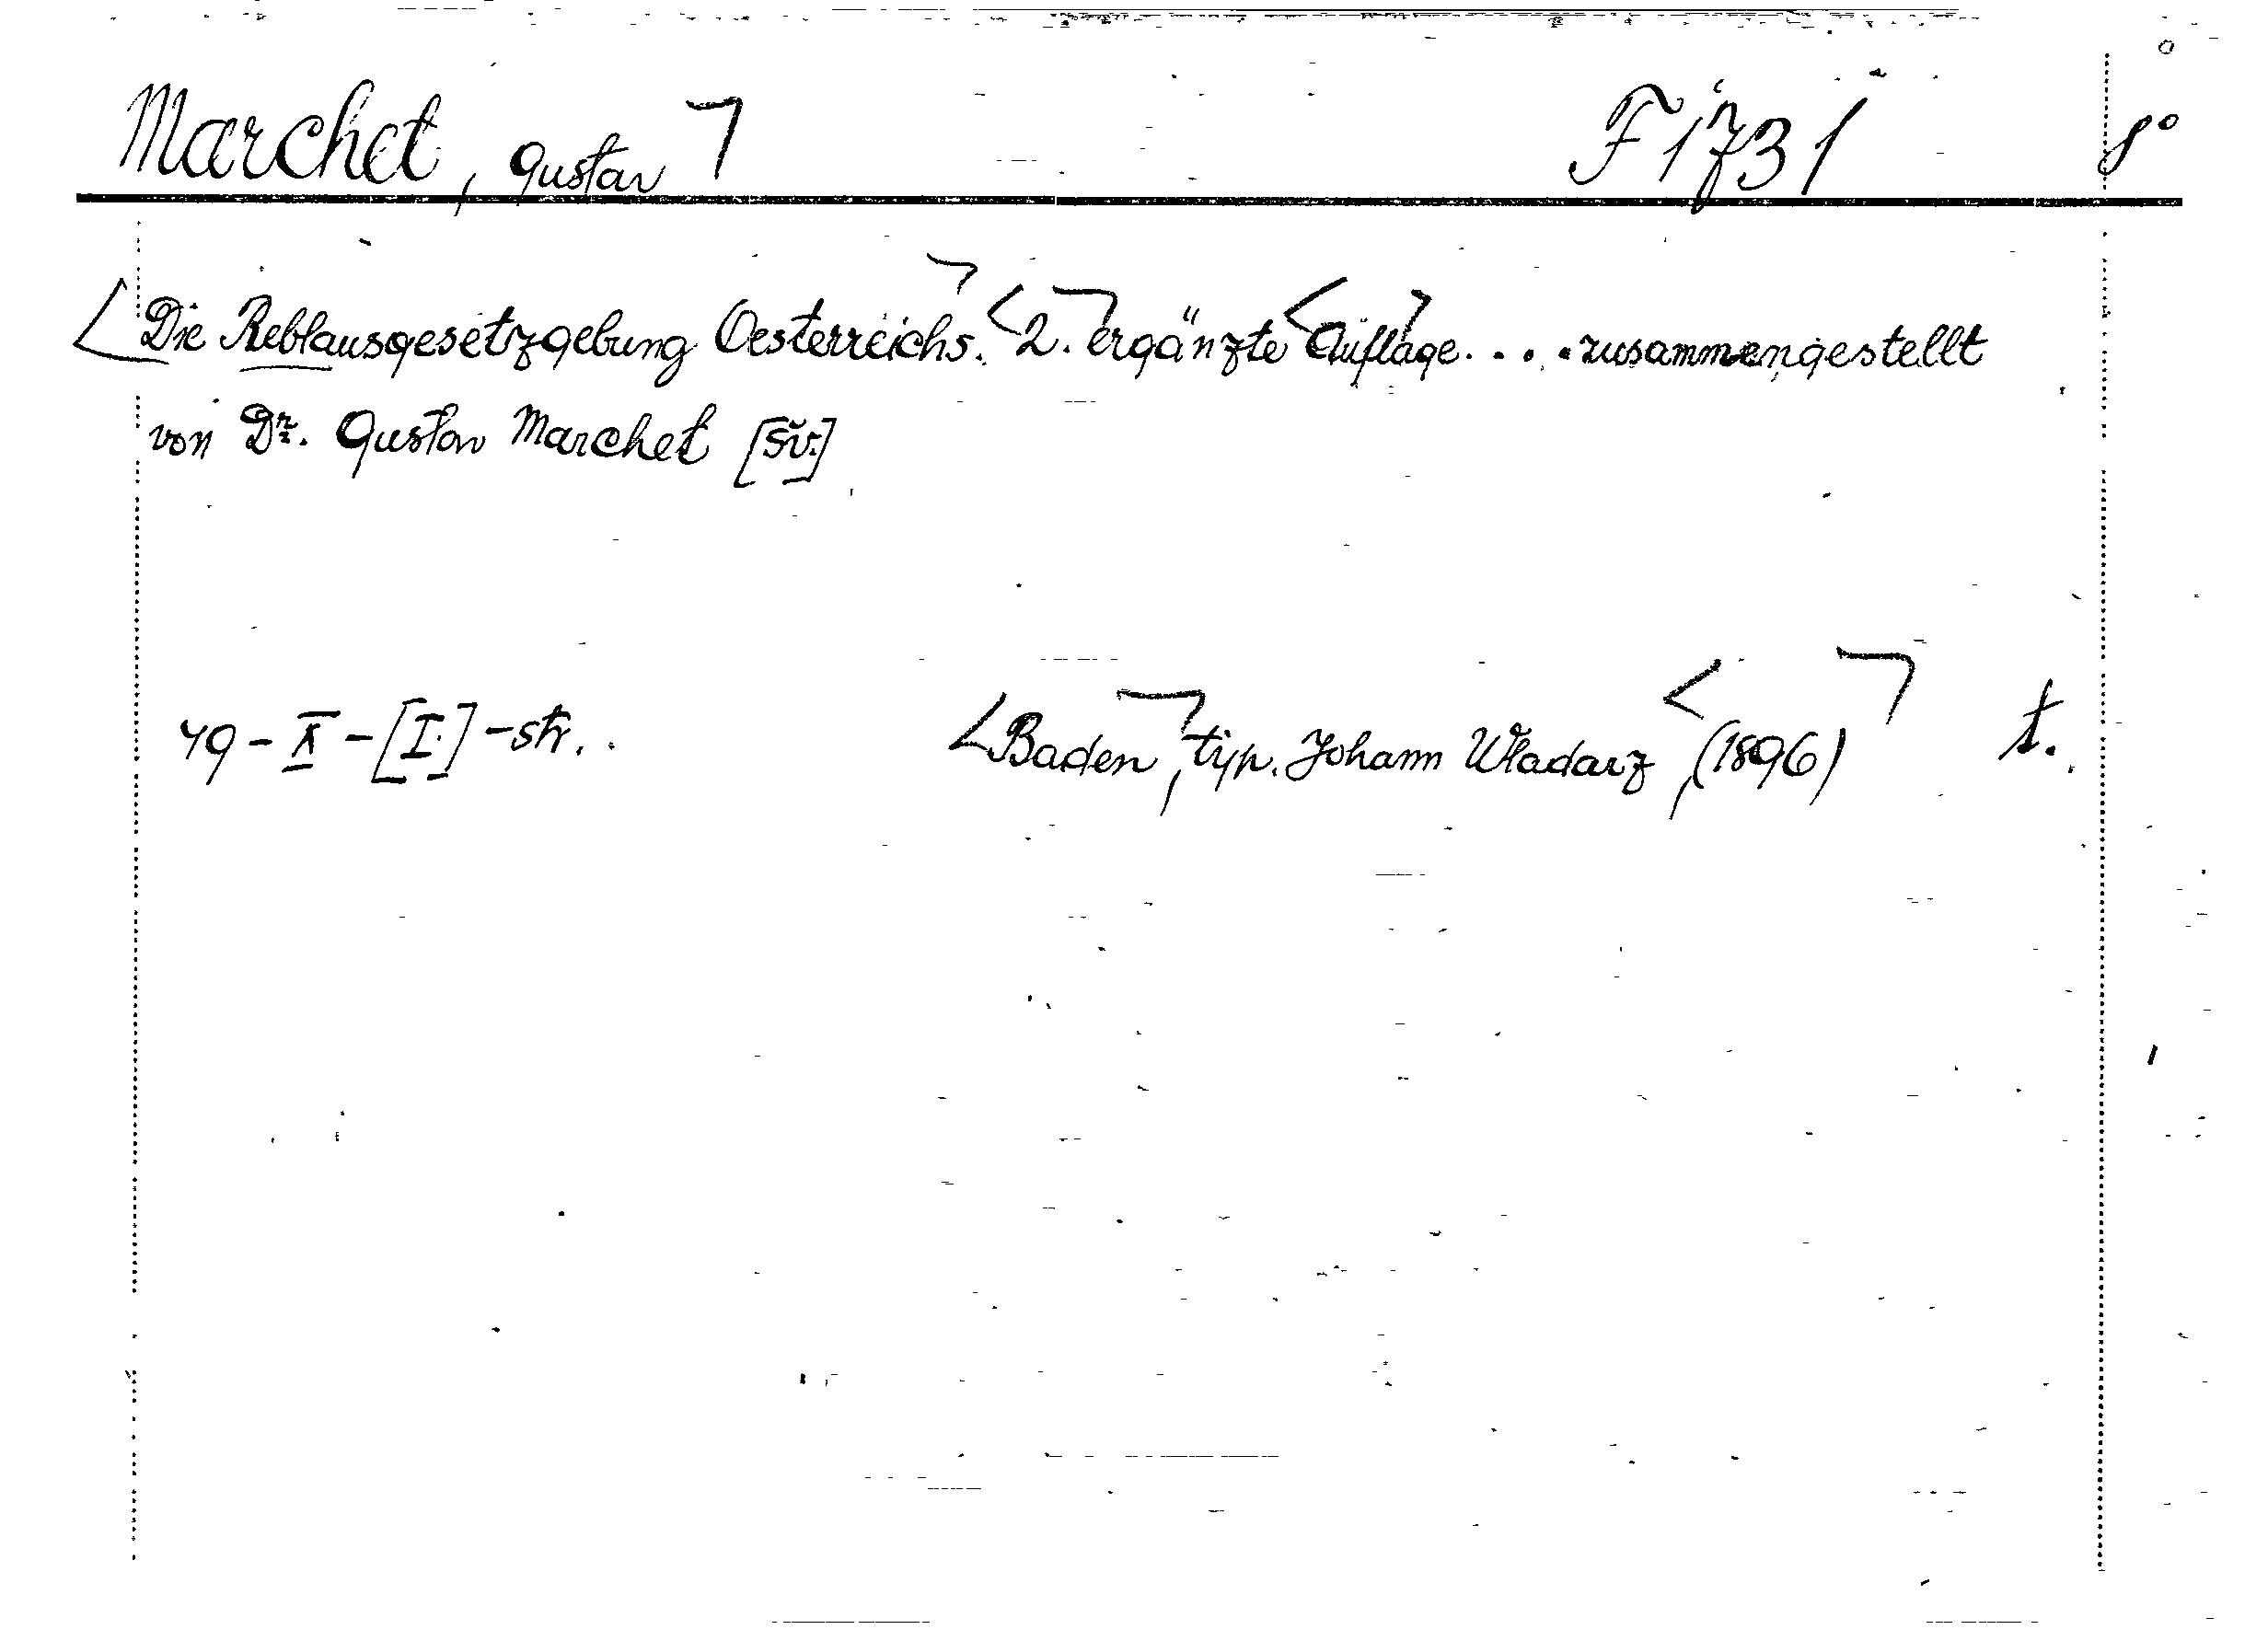 Marchet, Gustav F 1731 8°
Die Reblausgesetzgebung Oesterreichs. 2. ergänzte Auflage.... zusammengestellt
von Dr. Gustav Marchet [sv.]
49 - X - [I.] - str.. Baden, typ. Johann Wladarz, (1896) t.